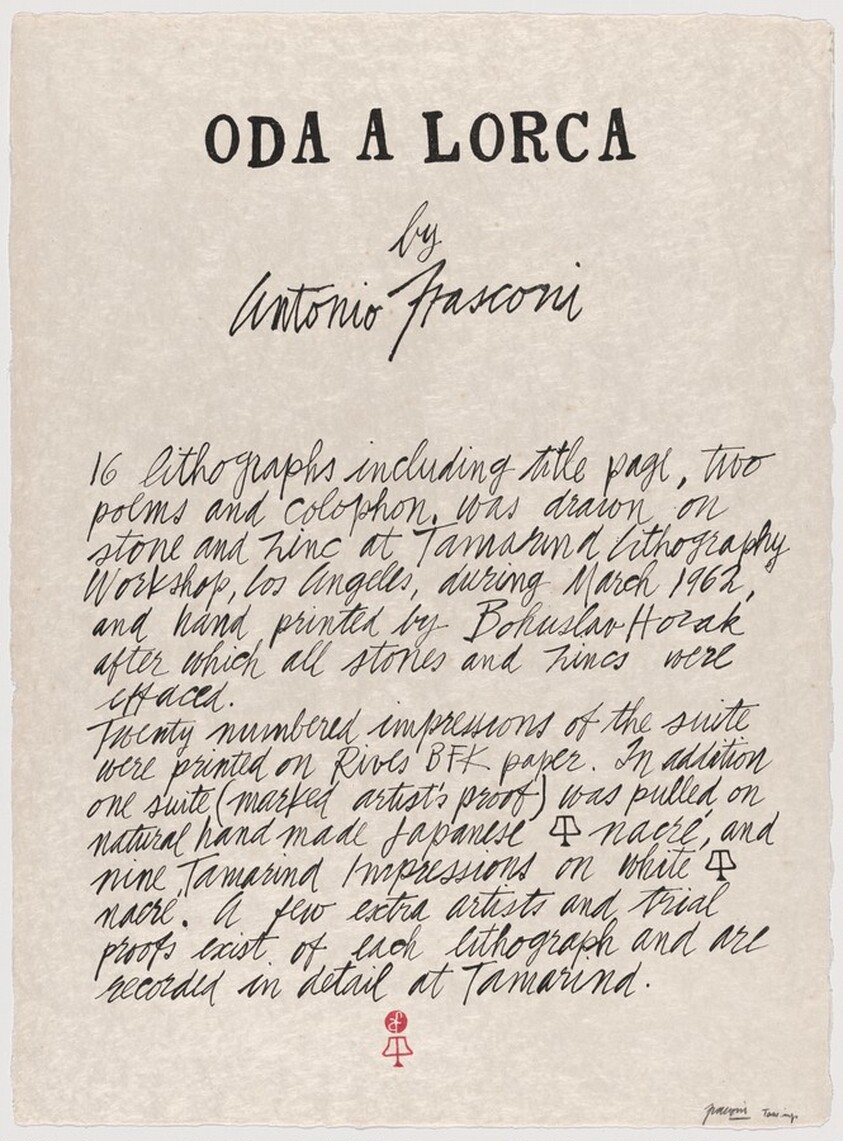 ODA A LORCA
by
Antonio Frasconi
16 lithographs including title page, two
poems and colophon. was drawn on
stone and zinc at Tamarind Lithography
Workshop, Los Angeles, during March 1962,
and hand printed by Bohuslav Horak
after which all stones and zincs were
effaced.
Twenty numbered impressions of the suite
were printed on Rives BFK paper. In addition
one suite (marked artist's proof) was pulled on
natural hand made Japanese nacré, and
nine Tamarind Impressions on white
nacré. A few extra artists and trial
proofs exist of each lithograph and are
recorded in detail at Tamarind.
Frasconi Tam imp.